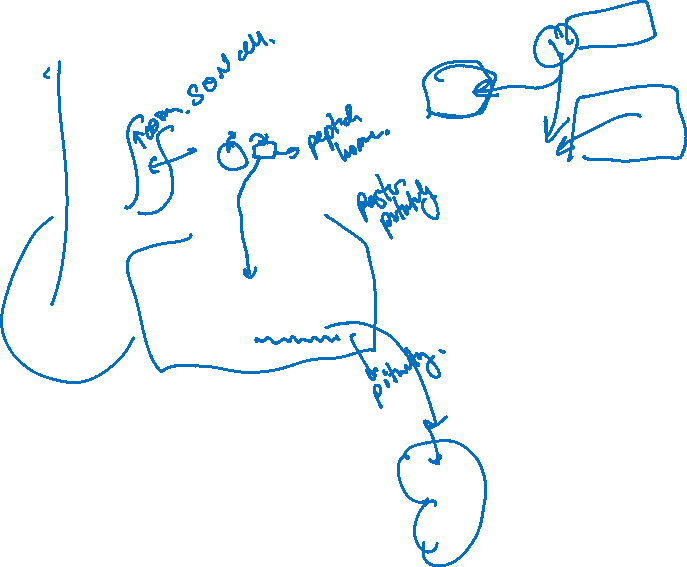 SON cell.
peptide
horm.
poster.
pituitary
pituitary.